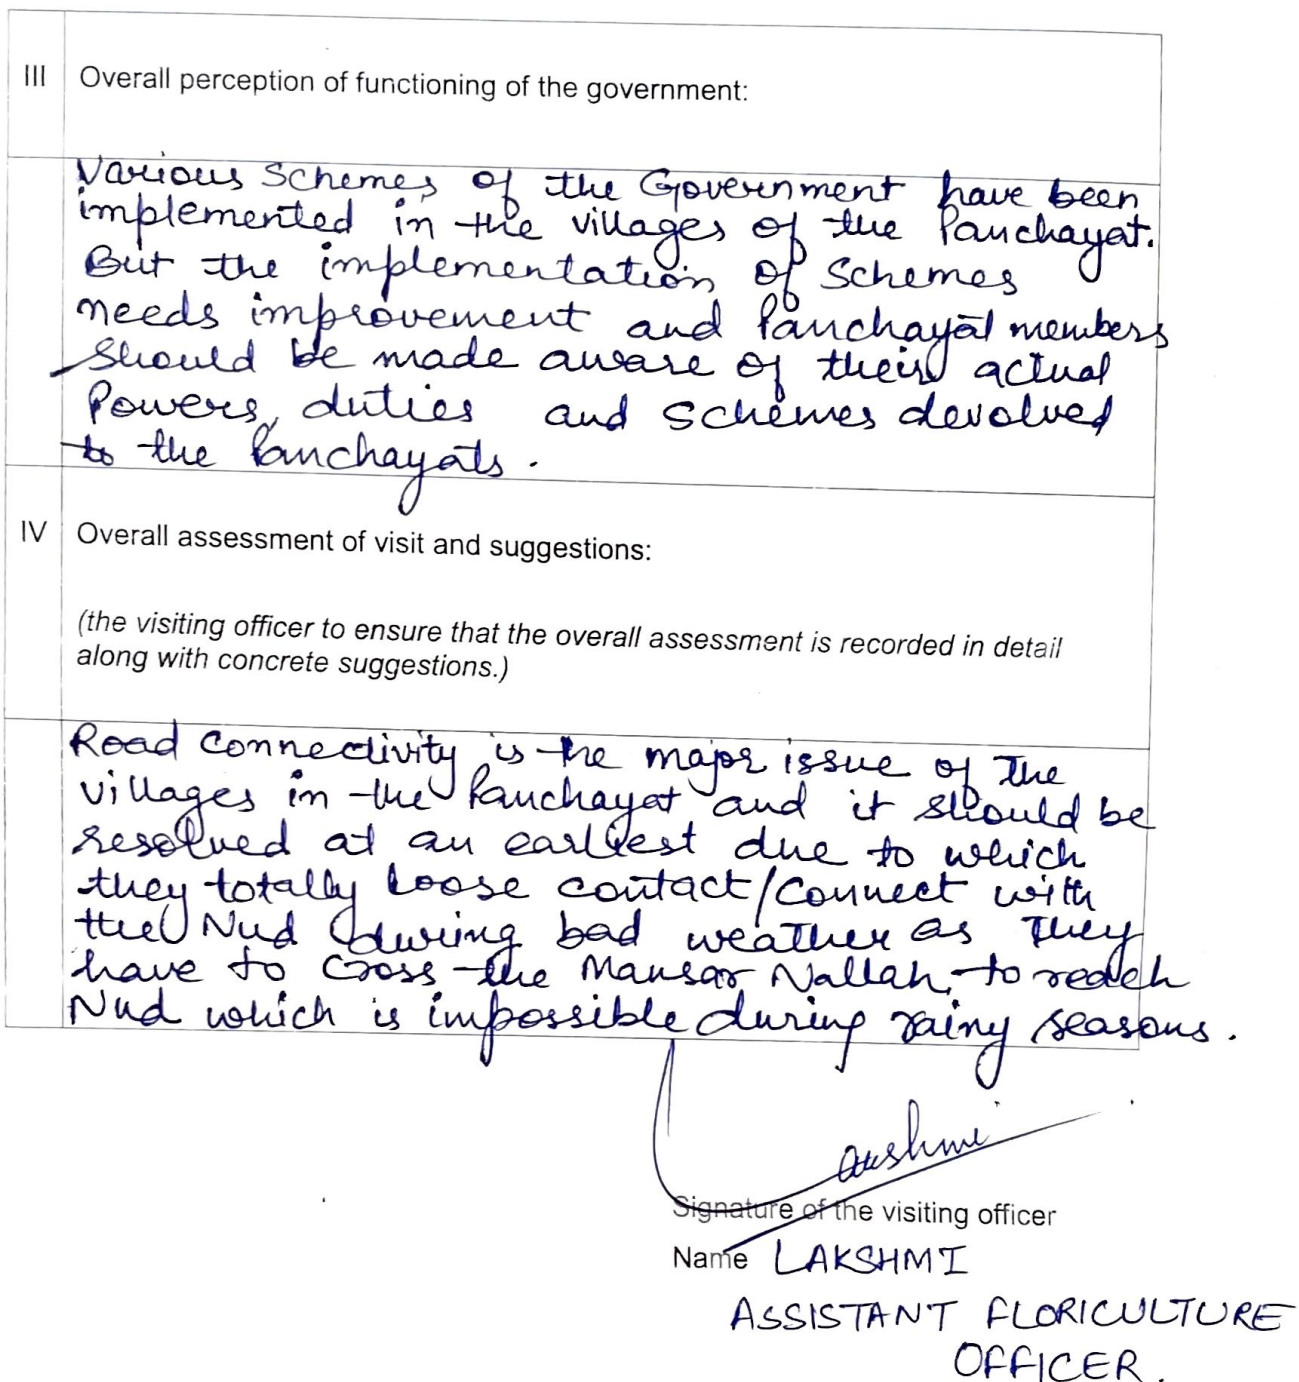 III Overall perception of functioning of the government:
Various Schemes of the Government have been
implemented in the villages of the Panchayat.
But the implementation of Schemes
needs improvement and Panchayat members
should be made aware of their actual
Powers, duties and schemes devolved
to the Panchayats.
IV Overall assessment of visit and suggestions:
(the visiting officer to ensure that the overall assessment is recorded in detail
along with concrete suggestions.)
Road connectivity is the major issue of the
villages in the Panchayat and it should be
resolved at an earliest due to which
they totally loose contact/connect with
the Nud during bad weather as they
have to cross the Mansar Nallah, to reach
Nud which is impossible during rainy seasons.
Signature of the visiting officer
Name LAKSHMI
ASSISTANT FLORICULTURE
OFFICER.